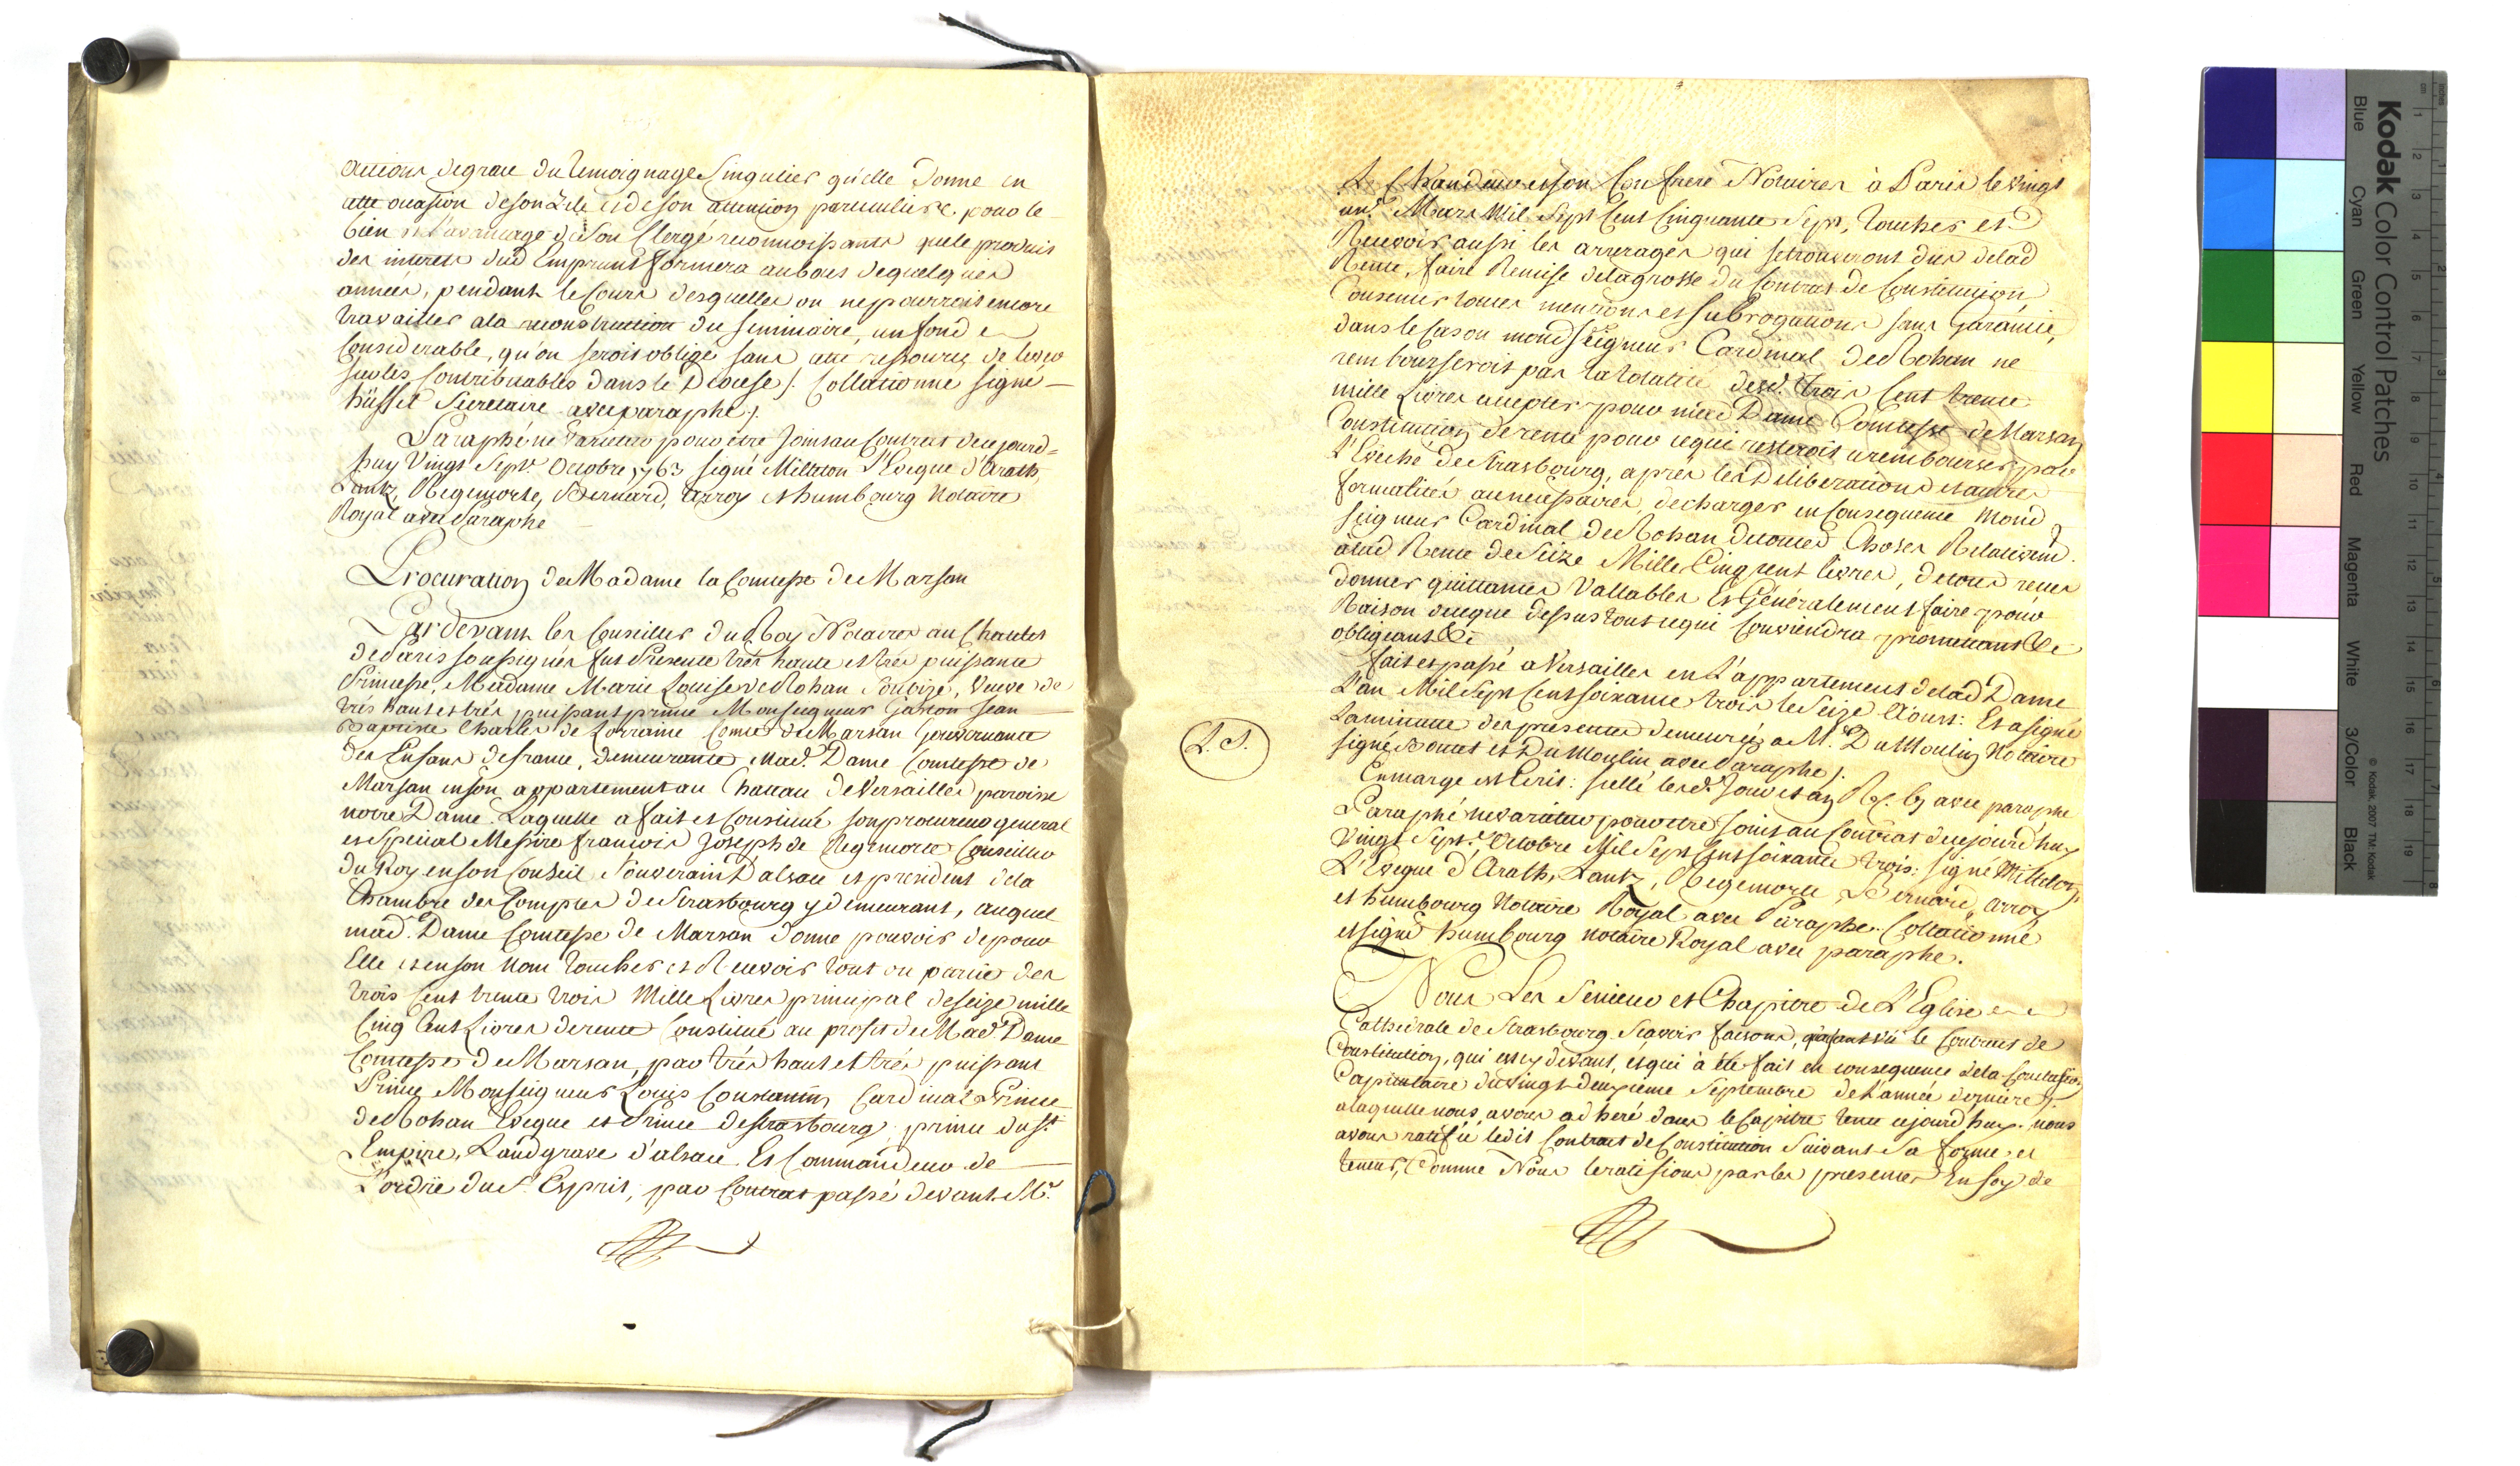 actions de grace du temoignage Singulier qu'elle Donne en
cette occasion de son Zele et de son attention particuliere pour le
bien et l'avantage de Son Clergé reconnoissants que le produit
des interets dud Emprunt formera au bout de quelques
années, pendant le Cours desquelles on ne pourroit encore
travailler a la reconstruction du Seminaire, un fond
Considerable, qu'on seroit obligé sans cette ressource de lever
sur les Contribuables dans le Diocese /. Collationné signé
hüffel Secretaire avec paraphe /.
Paraphé ne Varietur pour être Joint au Contrat de cejourd=
huy Vingt Sept Octobre 1763 signé Milleton L'Eveque d'Arath,
Lantz, Regemorte, Bernard, arroy et humbourg Notaire
Royal avec Paraphe
Procuration de Madame la Comtesse de Marsan
Pardevant les Conseillers du Roy Notaires au Chatelet
de Paris soussignés fut Presente très haute et très puissante
Princesse, Madame Marie Louise de Rohan Soubize, Veuve de
très haut et très puissant prince Monseigneur Gaston Jean
Baptiste Charles de Lorraine Comte de Marsan Gouvernante
des Enfans de france, demeurante Mad.e Dame Comtesse de
Marsan en son appartement au Chateau de Versailles paroisse
notre Dame. Laquelle a fait et Constitué son procureur general
et Special Messire francois Joseph de Regemorte Conseiller
du Roy en son Conseil Souverain D'alsace et president de la
Chambre des Comptes de Strasbourg y demeurant, auquel
mad.e Dame Comtesse de Marsan donne pouvoir de pour
Elle et en son Nom toucher et Recevoir tout ou partie des
trois Cent trente trois Mille Livres principal de seize mille
Cinq Cent Livres de rente Constitué au profit de Mad.e Dame
Comtesse de Marsan, par très haut et très puissant
Prince Monseigneur Louis Constantin Cardinal Prince
de Rohan Eveque et Prince de Strasbourg prince du St
Empire, Landgrave d'alsace. Et Commandeur de
L'ordre du St Esprit, par Contrat passé devant M.e
et son Confrere Notaires à Paris le vingt
un.e Mars Mil Sept Cent Cinquante Sept, toucher et
Recevoir aussi les arrerages qui se trouveront dus de lad
Rente, faire Remise de la grosse du Contrat de Constitution
Consentir toutes mentions et subrogations sans Garantie,
dans le Cas ou mond Seigneur Cardinal de Rohan ne
rembourseroit pas la totalité desd. trois Cent trente
mille Livres accepter pour mad Dame Comtesse de Marsan
Constitution de rente pour ce qui resteroit a rembourser par
L'Eveché de Strasbourg, après les Deliberations et autres
formalités a ce necessaires, decharger en Consequence Mond
seigneur Cardinal de Rohan de toutes Choses Relativem.
a lad Rente de Seize Mille Cinq cent livres, de tout recu
donner quittances Vallables Et Généralement faire pour
Raison de ce que dessus tout ce qui Conviendra promettant &c
obligeant &c
fait et passé a Versailles en L'appartement de lad Dame
L'an Mil Sept Cent soixante trois le Seize Aoust: Et a signé
la minute des presentes demeurée a M.e DuMoulin Notaire
signé et DuMoulin avec Paraphe /.
L. S.
En marge est Ecrit: scellé lesd. Jour et an avec paraphe
Paraphé ne varietur pour être Joint au Contrat de cejourd'huy
Vingt Sept.e Octobre Mil Sept Cent soixante trois: signé Milleton
L'Eveque d'Arath, Lantz, Regemorte, Bernard, arroy
et humbourg Notaire Royal avec Paraphe. Collationné
et signé humbourg notaire Royal avec paraphe.
Nous Les Senieur et Chapitre de L'Eglise
Cathedrale de Strasbourg Scavoir faisons, qu'ayant vû le Contract de
Constitution, qui est cy devant, et qui à été fait en consequence de la Conclusion
Capitulaire du vingt deuxieme Septembre de L'année derniere,
a laquelle nous avons adheré dans le Capitre tenu cejourd'huy. nous
avons ratifié ledit Contract de Constitution Suivant Sa forme et
teneur, Comme Nous le ratifions par les presentes En foy de